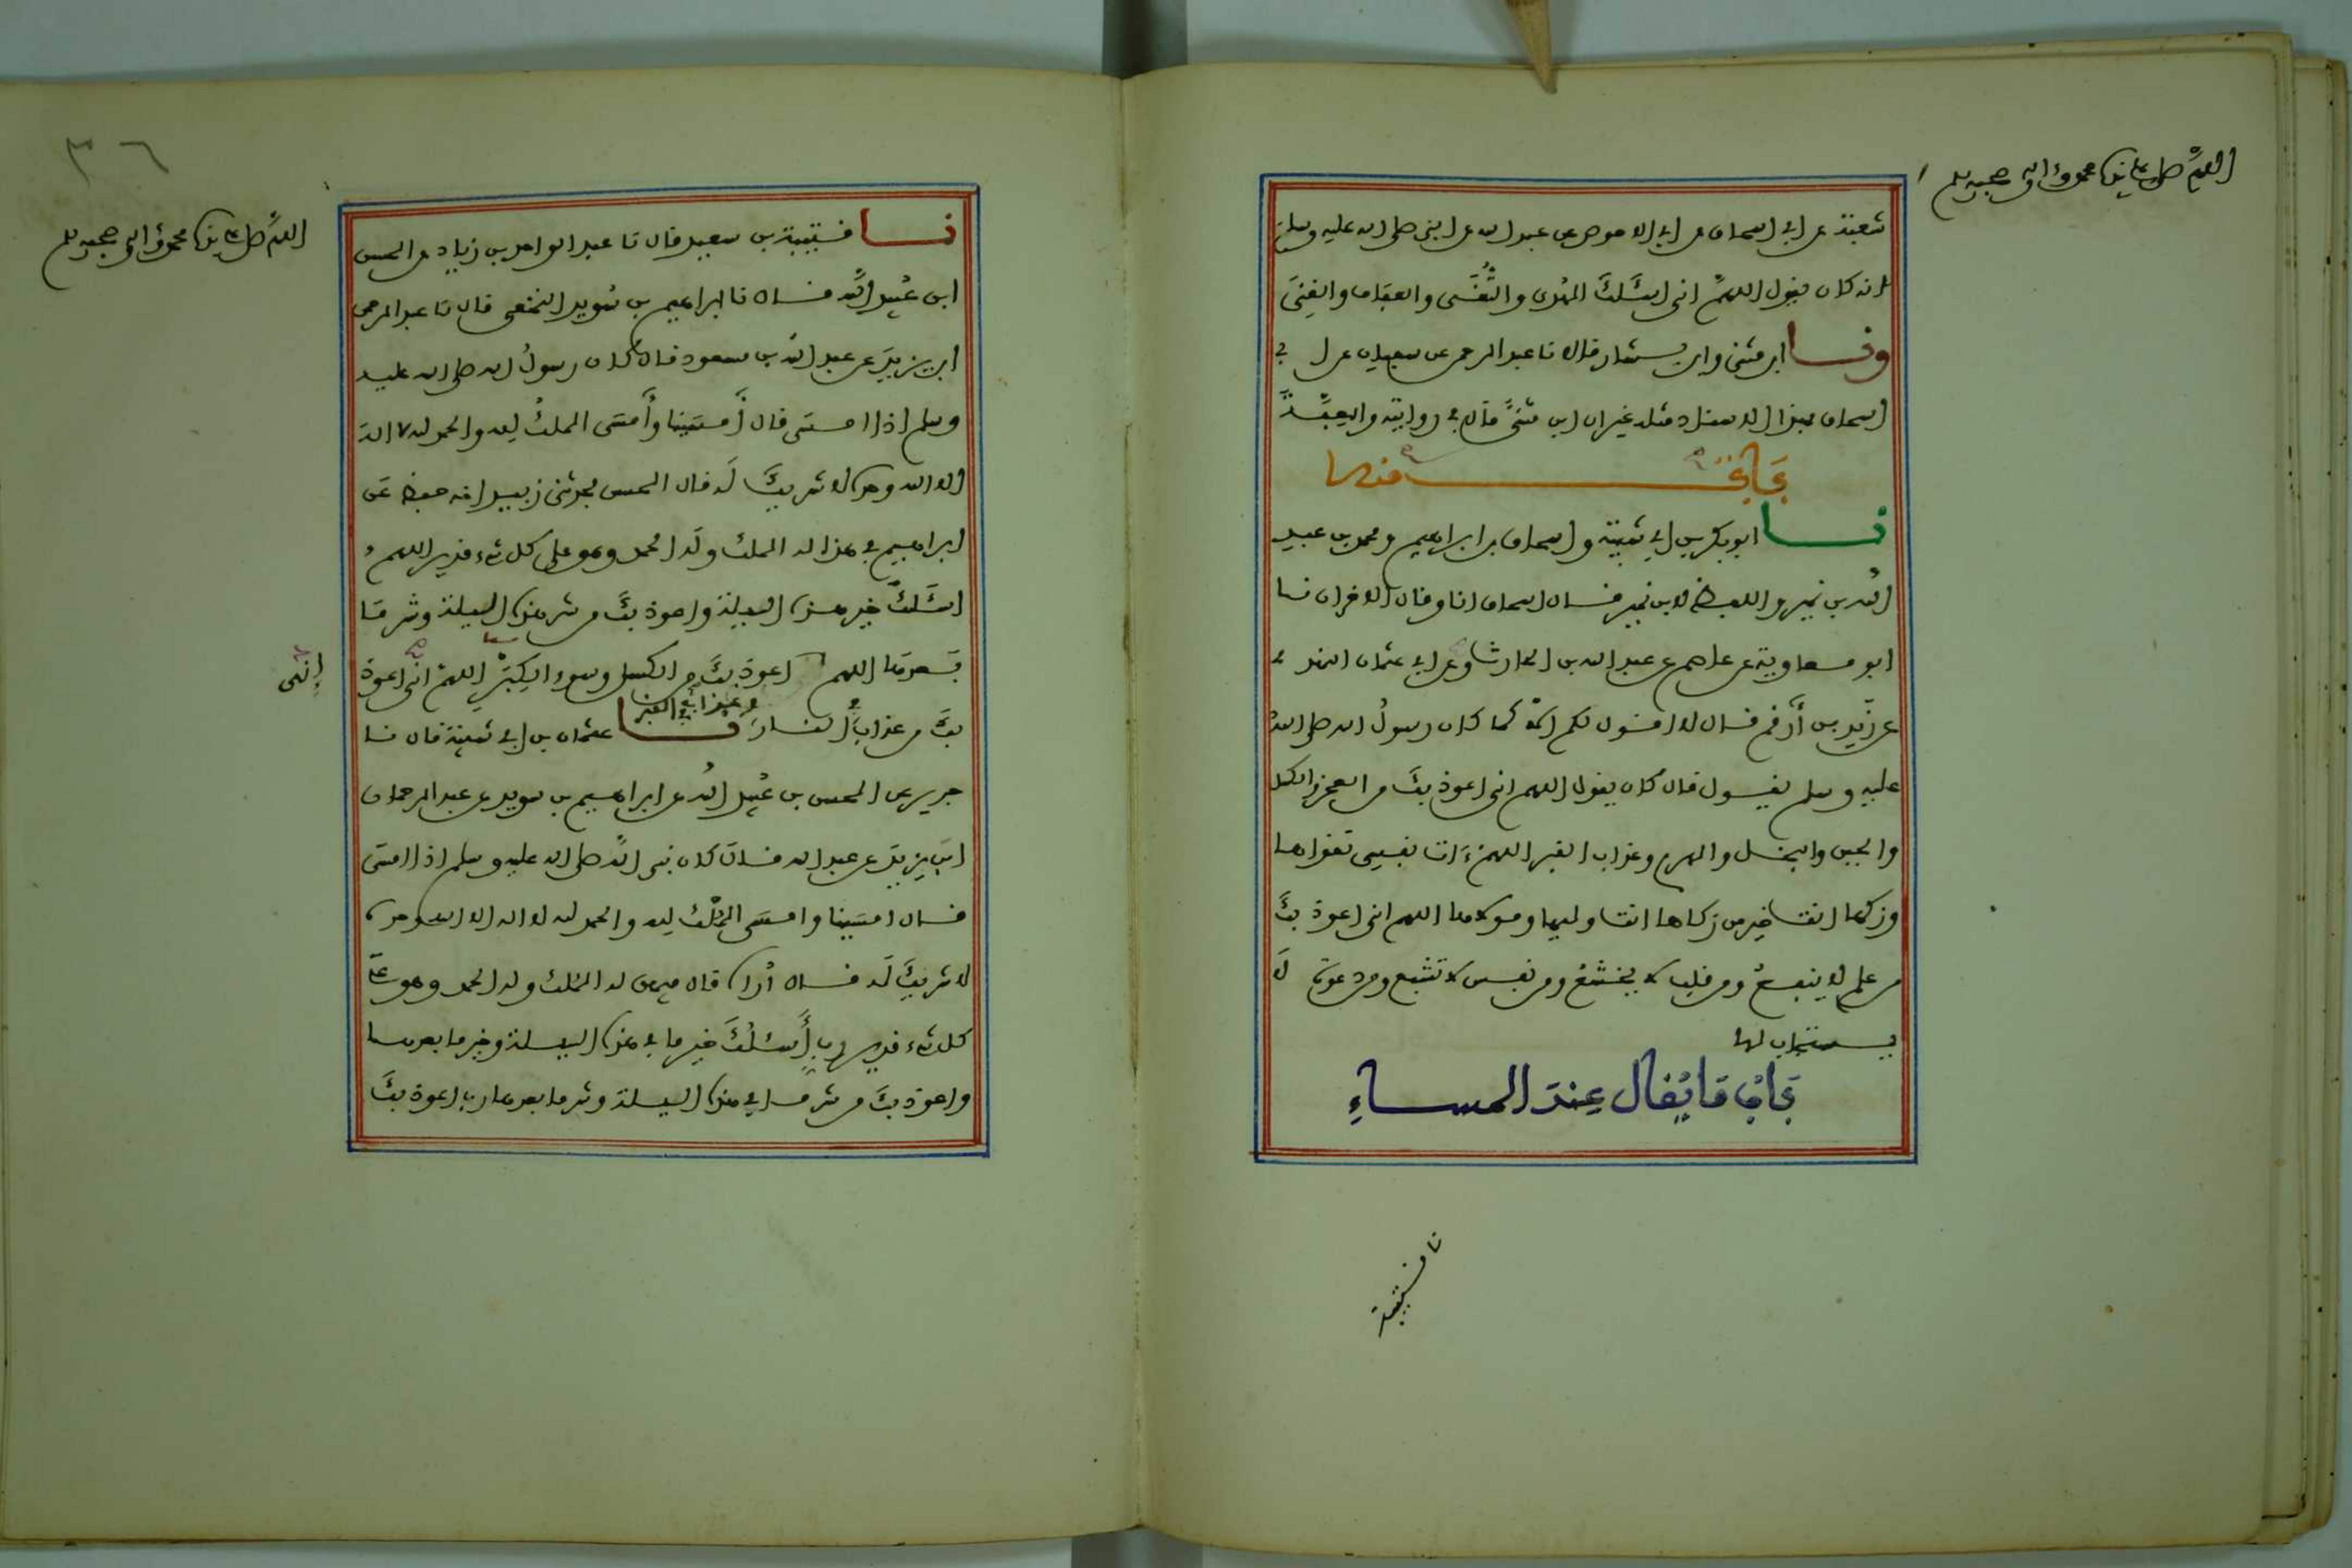 اللهم صل على سيدنا محمد وءاله وصحبه وسلم
شعبة عن ابي اسحاق عن ابي الاحوص عن عبد الله عن النبي صلى الله عليه وسلم
انه كان يقول اللهم اني اسئلك الهدى والتقى والعفاف والغنى
ونا ابن مثنى وابن بشار قالا نا عبد الرحمن عن سفيان عن ابي
اسحاق بهذا الاسناد مثله غير ان ابن مثنى قال في روايته والعفة
باب منه
نا ابو بكر بن ابي شيبة واسحاق بن ابراهيم ومحمد بن عبد
الله بن نمير واللفظ لابن نمير قال اسحاق انا وقال الاخران نا
ابو معاوية عن عاصم عن عبد الله بن الحارث وعن ابي عثمان النهدي
عن زيد بن أرقم قال لا اقول لكم الا كما كان رسول الله صلى الله
عليه وسلم يقول قال كان يقول اللهم اني اعوذ بك من العجز والكسل
والجبن والبخل والهرم وعذاب القبر اللهم ءات نفسي تقواها
وزكها انت خير من زكاها انت وليها ومولاها اللهم اني اعوذ بك
من علم لا ينفع ومن قلب لا يخشع ومن نفس لا تشبع ومن دعوة لا
يستجاب لها
باب ما يقال عند المساء
نا قتيبة
٣٦
اللهم صل على سيدنا محمد وءاله وصحبه وسلم
نا قتيبة بن سعيد قال نا عبد الواحد بن زياد عن الحسن
ابن عبيد الله قال نا ابراهيم بن سويد النخعي قال نا عبد الرحمن
ابن يزيد عن عبد الله بن مسعود قال كان رسول الله صلى الله عليه
وسلم اذا امسى قال أمسينا وأمسى الملك لله والحمد لله لا اله
الا الله وحده لا شريك له قال الحسن فحدثني زبيد انه حفظ عن
ابراهيم في هذا له الملك وله الحمد وهو على كل شيء قدير اللهم
اسئلك خير هذه الليلة واعوذ بك من شر هذه الليلة وشر ما
بعدها اللهم اعوذ بك من الكسل وسوء الكبر اللهم اني اعوذ
إني
بك من عذاب في النار وعذاب في القبر نا عثمان بن ابي شيبة قال نا
جرير عن الحسن بن عبيد الله عن ابراهيم بن سويد عن عبد الرحمان
ابن يزيد عن عبد الله قال كان نبي الله صلى الله عليه وسلم اذا امسى
قال امسينا وامسى الملك لله والحمد لله لا اله الا الله وحده
لا شريك له قال أراه قال فيهن له الملك وله الحمد وهو على
كل شيء قدير رب أسئلك خير ما في هذه الليلة وخير ما بعدها
واعوذ بك من شر ما في هذه الليلة وشر ما بعدها رب اعوذ بك